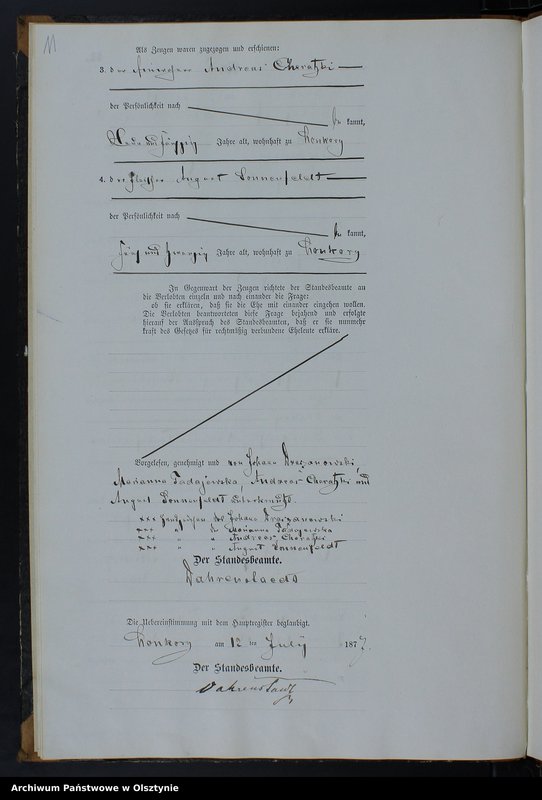 11
Als Zeugen waren zugezogen und erschienen:
3. der Einwohner Andreas Choratzki
der Persönlichkeit nach
be kannt,
und fünfzig Jahre alt, wohnhaft zu Honkory
4. der August Sonnenfeldt
der Persönlichkeit nach
be kannt,
fünf und zwanzig Jahre alt, wohnhaft zu Honkory
In Gegenwart der Zeugen richtete der Standesbeamte an
die Verlobten einzeln und nach einander die Frage:
ob sie erklären, daß sie die Ehe mit einander eingehen wollen.
Die Verlobten beantworteten diese Frage bejahend und erfolgte
hierauf der Ausspruch des Standesbeamten, daß er sie nunmehr
kraft des Gesetzes für rechtmäßig verbundene Eheleute erkläre.
Vorgelesen, genehmigt und von Johann
Marianna Tadajewska, Andreas Choratzki und
August Sonnenfeldt
xxx Handzeichen des Johann
xxx " der Marianna Tadajewska
xxx " " Andreas Choratzki
xxx " " August Sonnenfeldt
Der Standesbeamte.
Die Uebereinstimmung mit dem Hauptregister beglaubigt.
Honkory am 12 ten July 187
Der Standesbeamte.
Archiwum Państwowe w Olsztynie